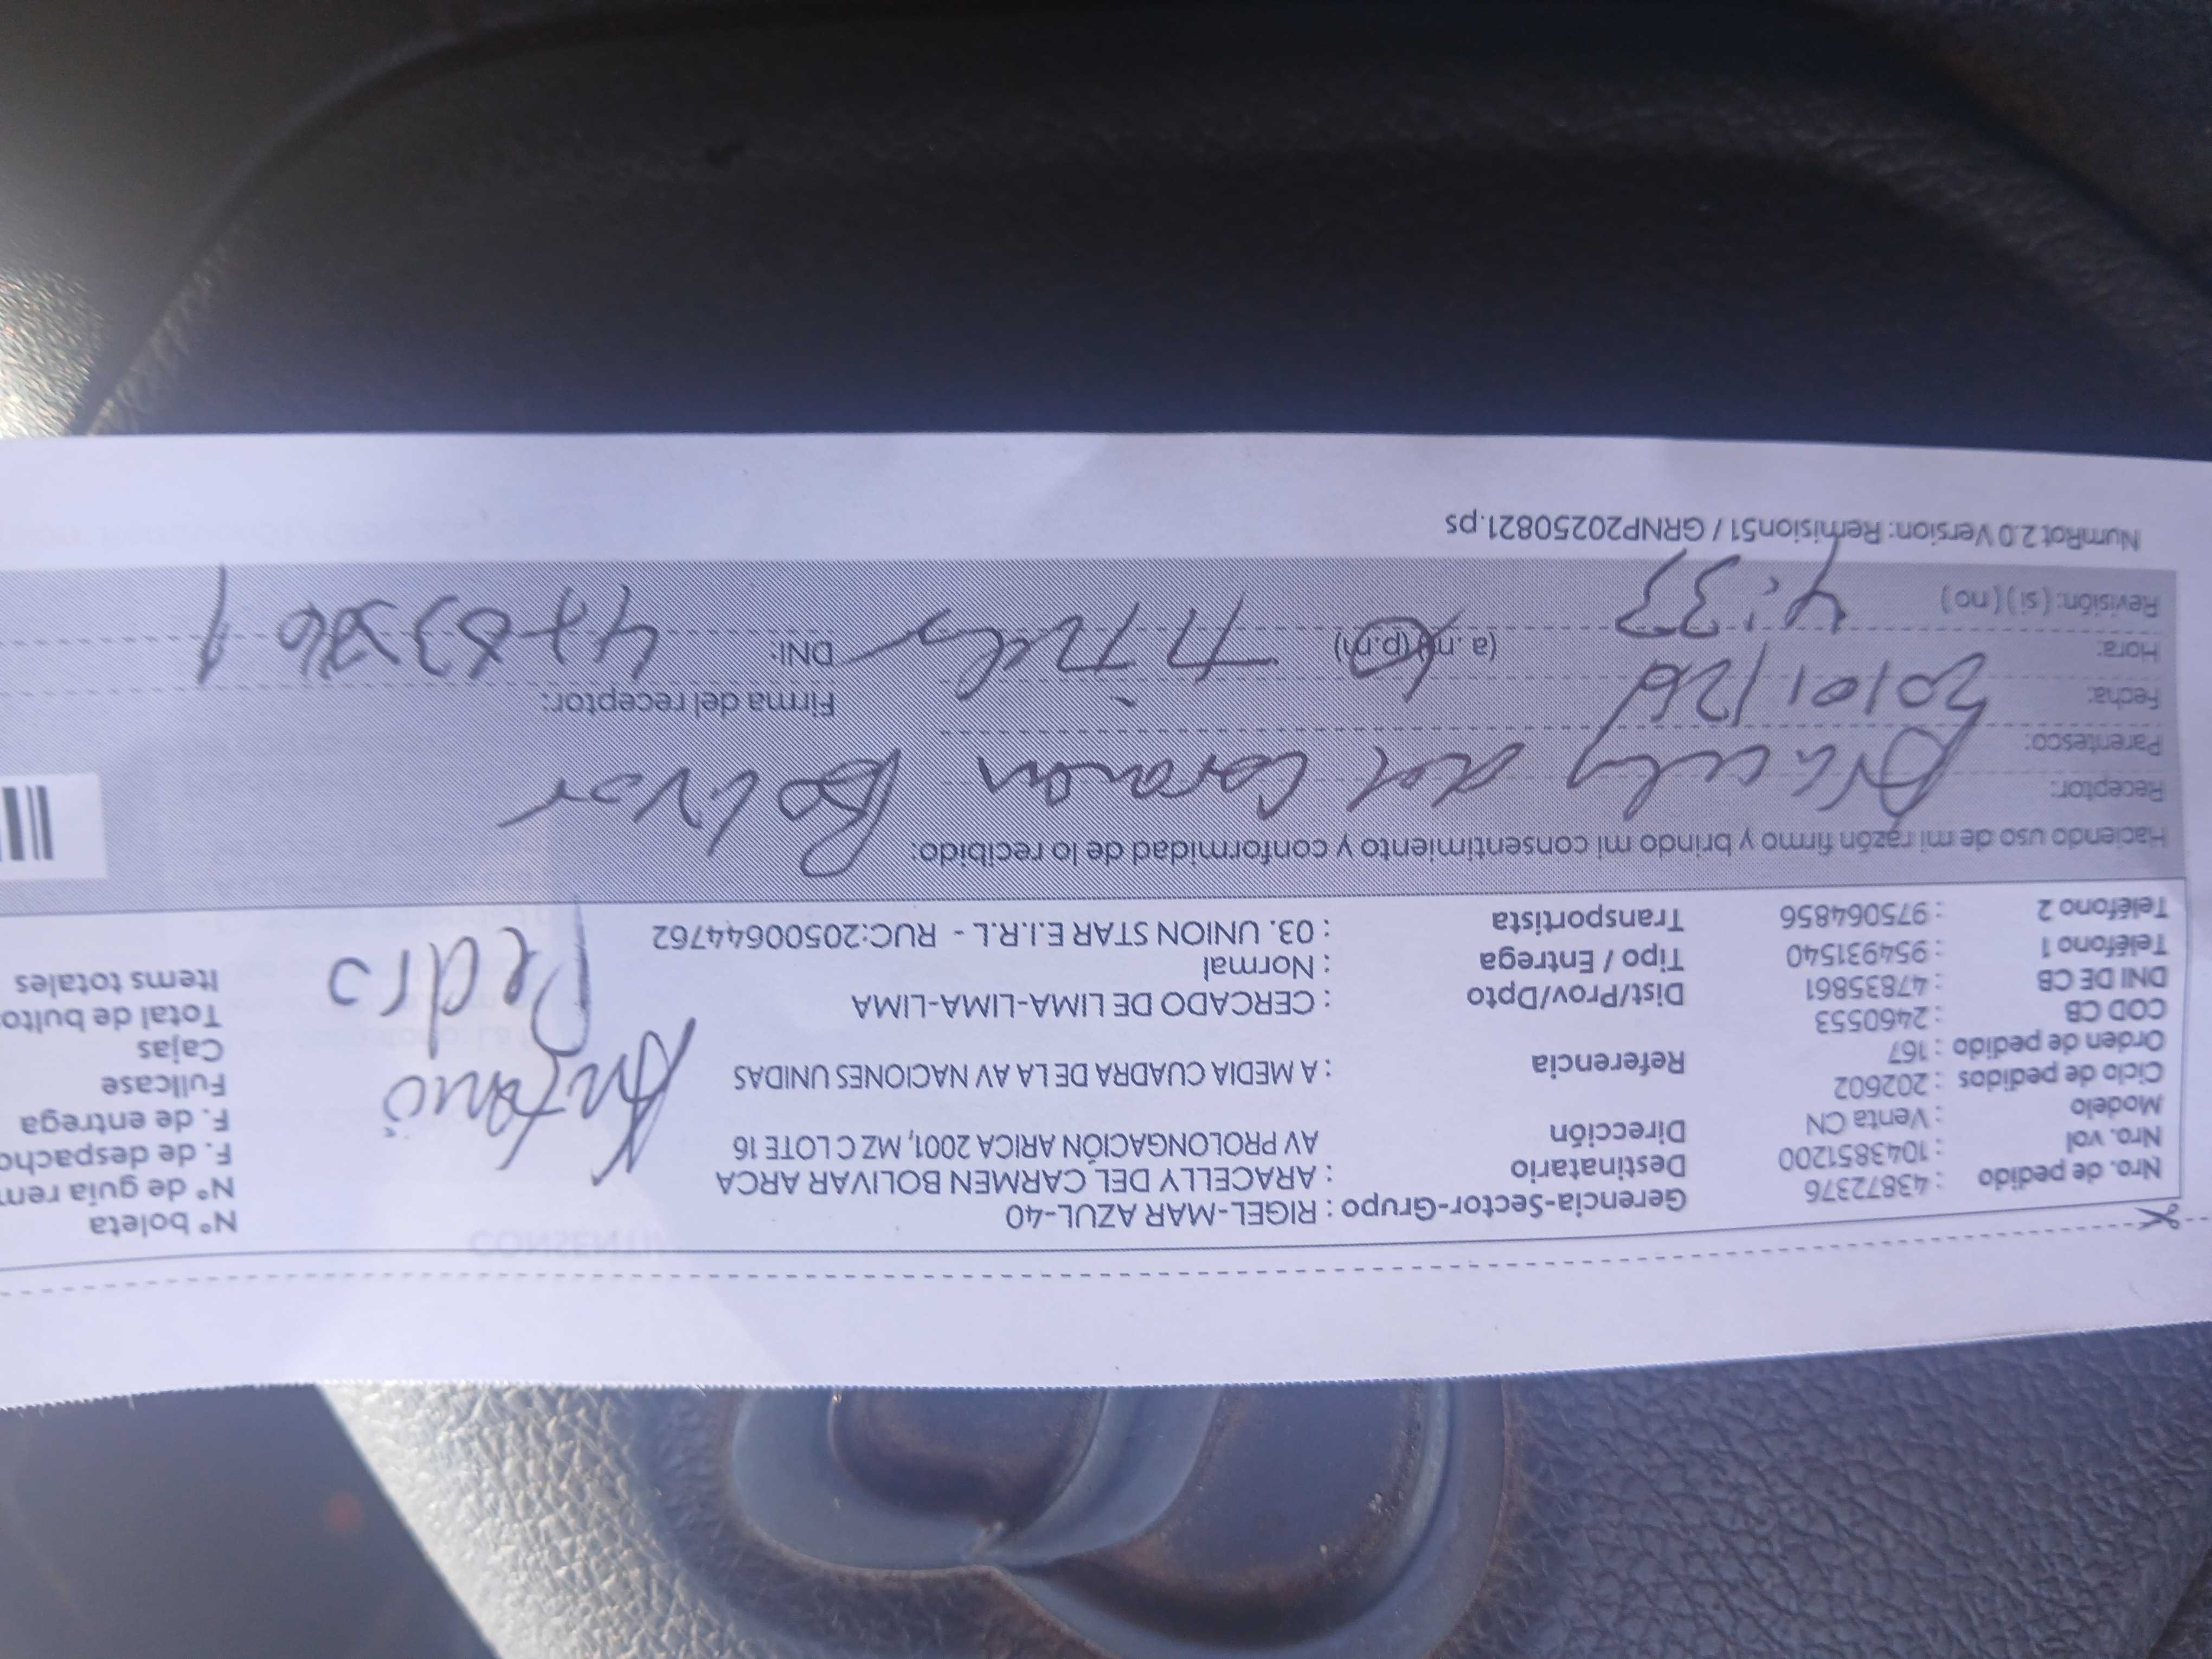 Nro. de pedido : 43872376 Gerencia-Sector-Grupo : RIGEL-MAR AZUL-40 N° boleta
Nro. vol : 1043851200 Destinatario : ARACELLY DEL CARMEN BOLIVAR ARCA N° de guía rem
Modelo : Venta CN Dirección AV PROLONGACIÓN ARICA 2001, MZ C LOTE 16 F. de despacho
Ciclo de pedidos : 202602 F. de entrega
Orden de pedido : 167 Referencia : A MEDIA CUADRA DE LA AV NACIONES UNIDAS Fullcase
COD CB : 2460553 Cajas
DNI DE CB : 47835861 Dist/Prov/Dpto : CERCADO DE LIMA-LIMA-LIMA Total de bulto
Teléfono 1 : 954931540 Tipo / Entrega : Normal Items totales
Teléfono 2 : 975064856 Transportista : 03. UNION STAR E.I.R.L - RUC:20500644762
Antonio
Pedro
Haciendo uso de mi razón firmo y brindo mi consentimiento y conformidad de lo recibido:
Receptor: del Bolivar
Parentesco:
Fecha: 20/01/26 Firma del receptor:
Hora: 4:33 (a. m) (p.m) DNI: 47835861
Revisión: ( si ) ( no )
NumRot 2.0 Version: Remision51 / GRNP20250821.ps